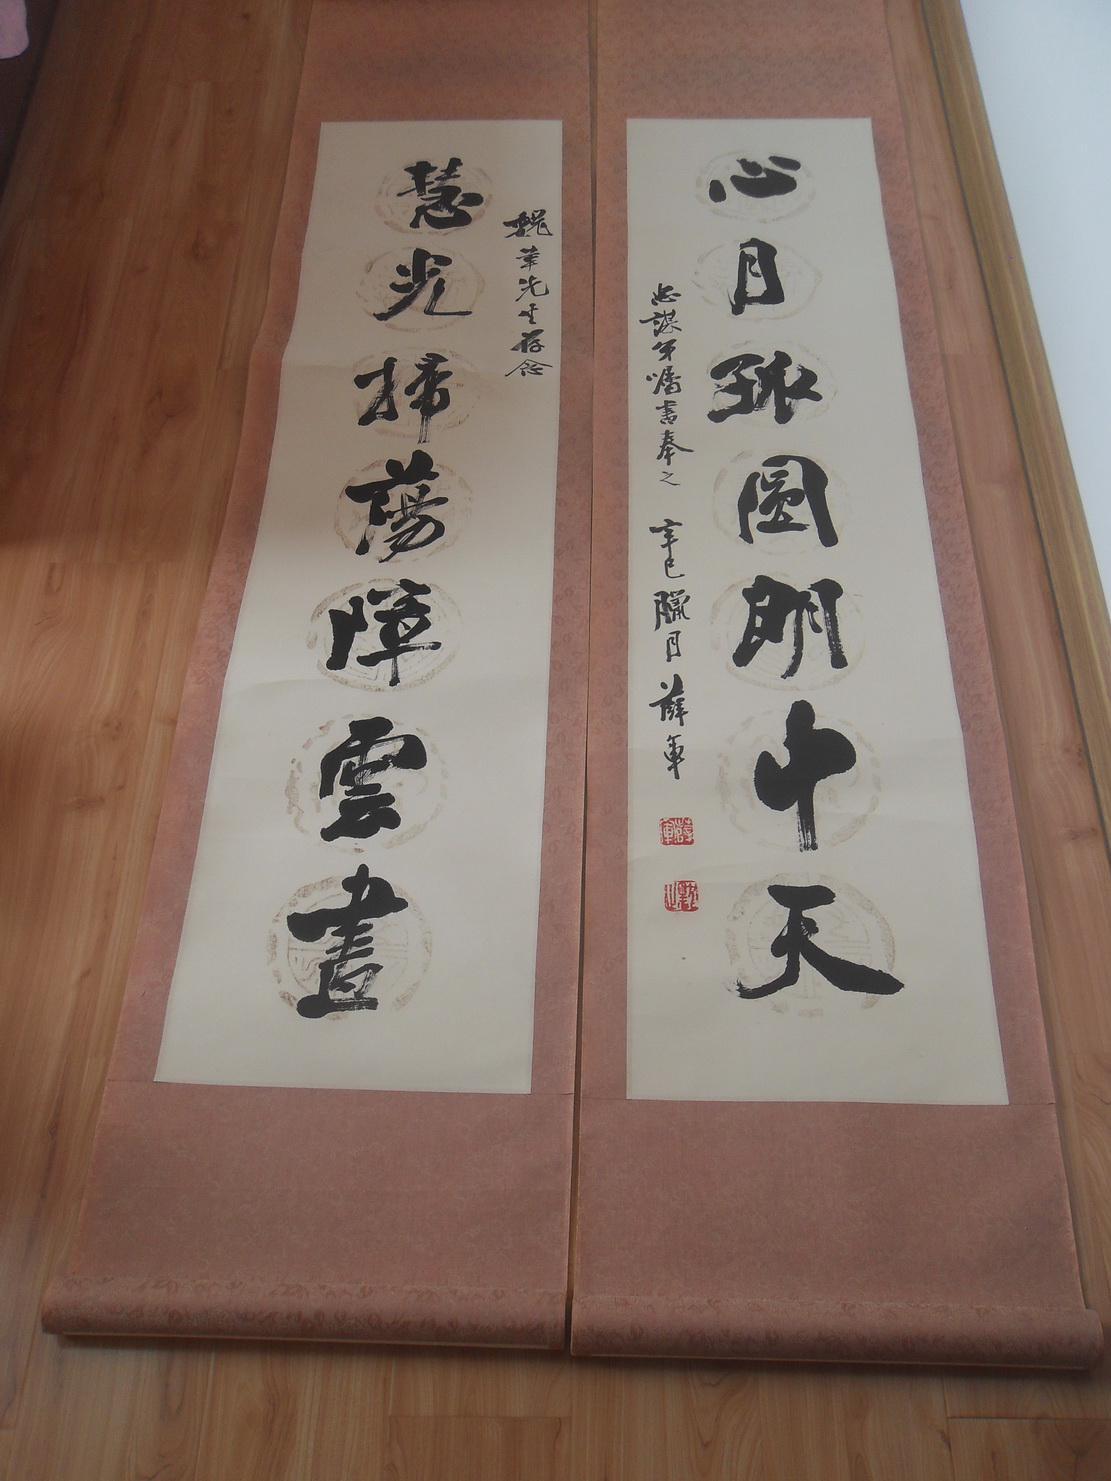 心月孤圓朗中天
志謀弟囑書奉之 辛巳臘月 薛軍
薛軍
慧光掃蕩障雲盡
魏華先生存念